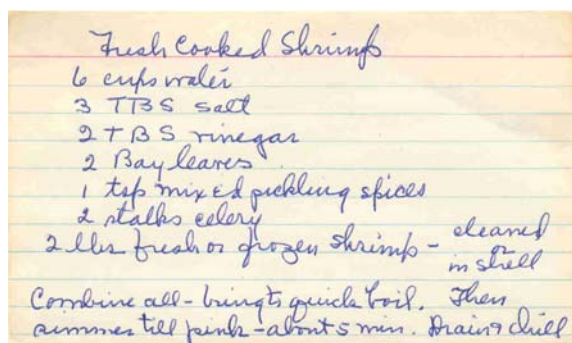 Fresh Cooked Shrimp
6 cups water
3 TBS salt
2 TBS vinegar
2 Bay leaves
1 tsp mixed pickling spices
2 stalks celery
2 lbs fresh or frozen shrimp - cleaned or in shell
Combine all - bring to quick boil. Then
simmer till pink - about 5 min. Drain & chill